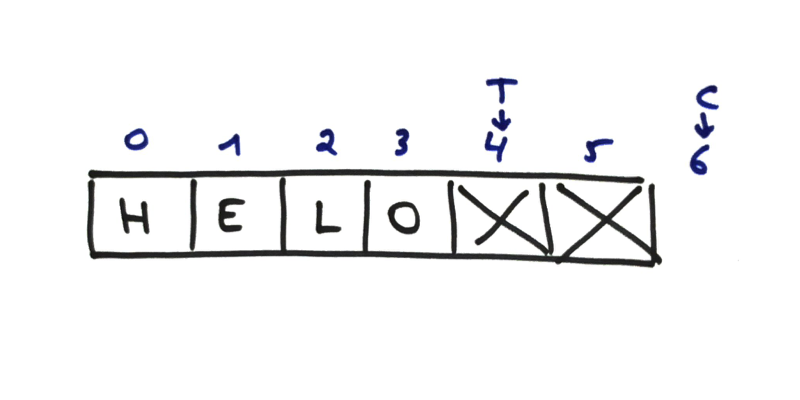 T C
0 1 2 3 4 5 6
H E L O X X